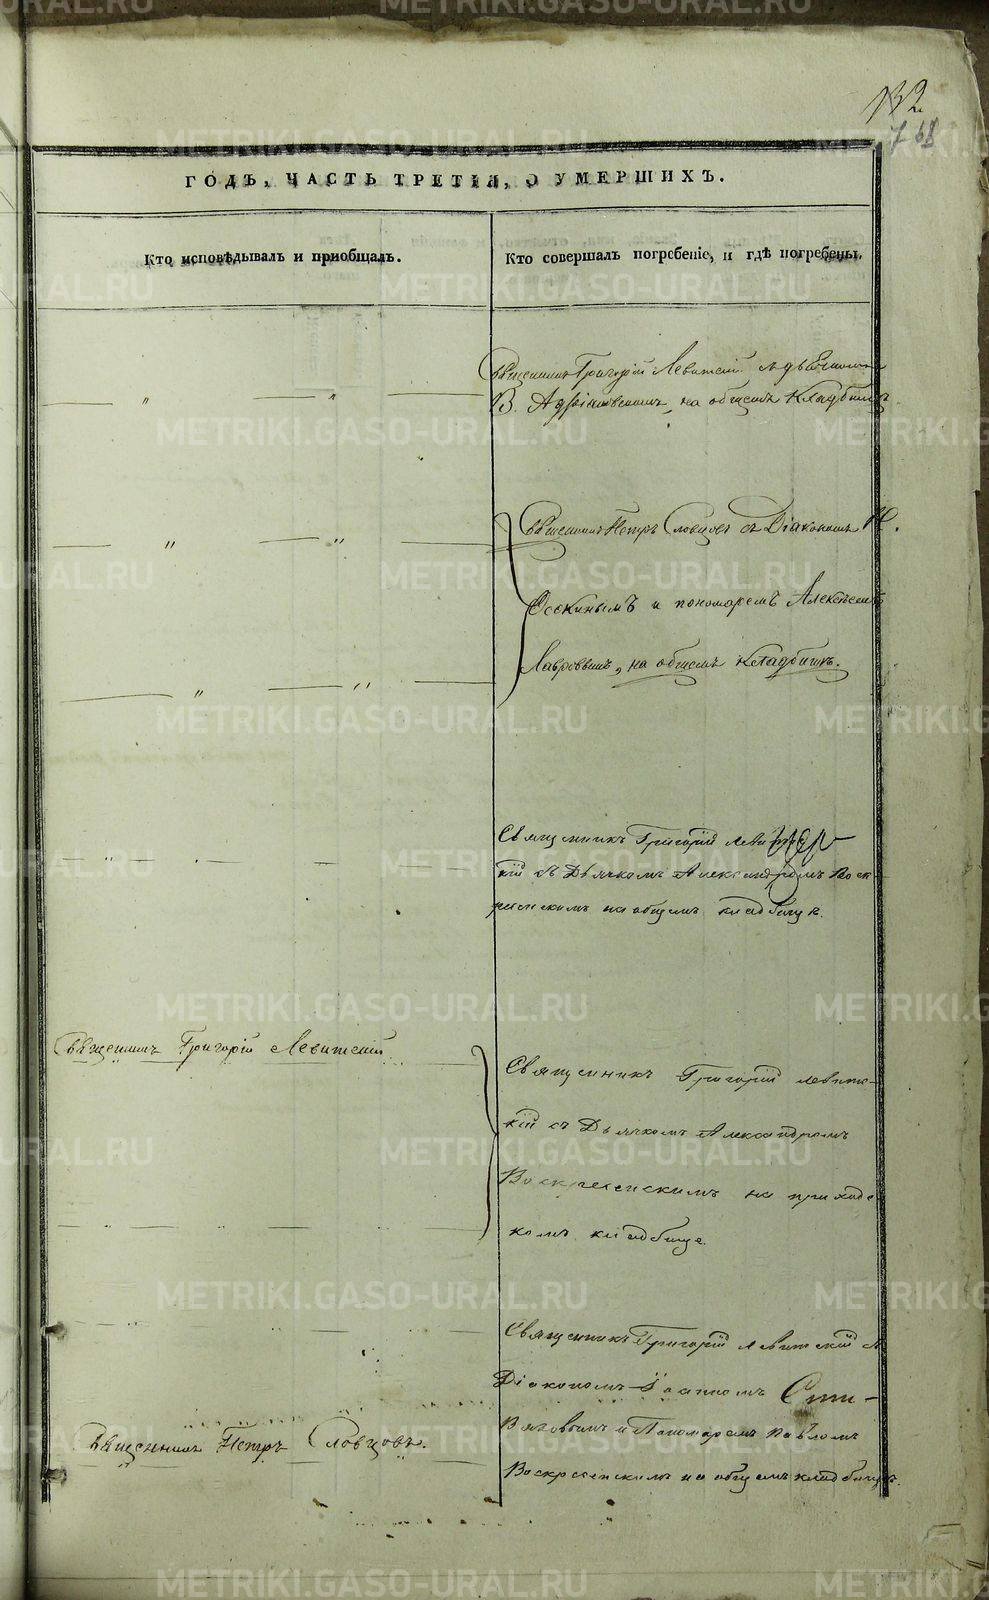 132
768
ГОДЪ, ЧАСТЬ ТРЕТІЯ, О УМЕРШИХЪ.
Кто исповѣдывалъ и пріобщалъ.
Кто совершалъ погребеніе, и гдѣ погребены.
Священникъ Григорій Левитскій съ
В. на общемъ кладбищѣ
Священникъ Петръ Словцовъ съ Діакономъ
Осокинымъ и пономаремъ Алексѣемъ
Лавровымъ, на общемъ кладбищѣ.
Священникъ Григорій Левит
кій съ Дьячкомъ Александромъ Воск-
ресенскимъ на общемъ кладбищѣ.
Священникъ Григорій Левитскій
Священникъ Григорій Левитс-
кій съ Дьячкомъ Александромъ
Воскресенскимъ на приходс
комъ кладбище.
Священникъ Григорій Левитскій съ
Діакономъ Іоанномъ
и Пономаремъ Павломъ
Священникъ Петръ Словцовъ.
Воскресенскимъ на общемъ кладбищѣ.
METRIKI.GASO-URAL.RU